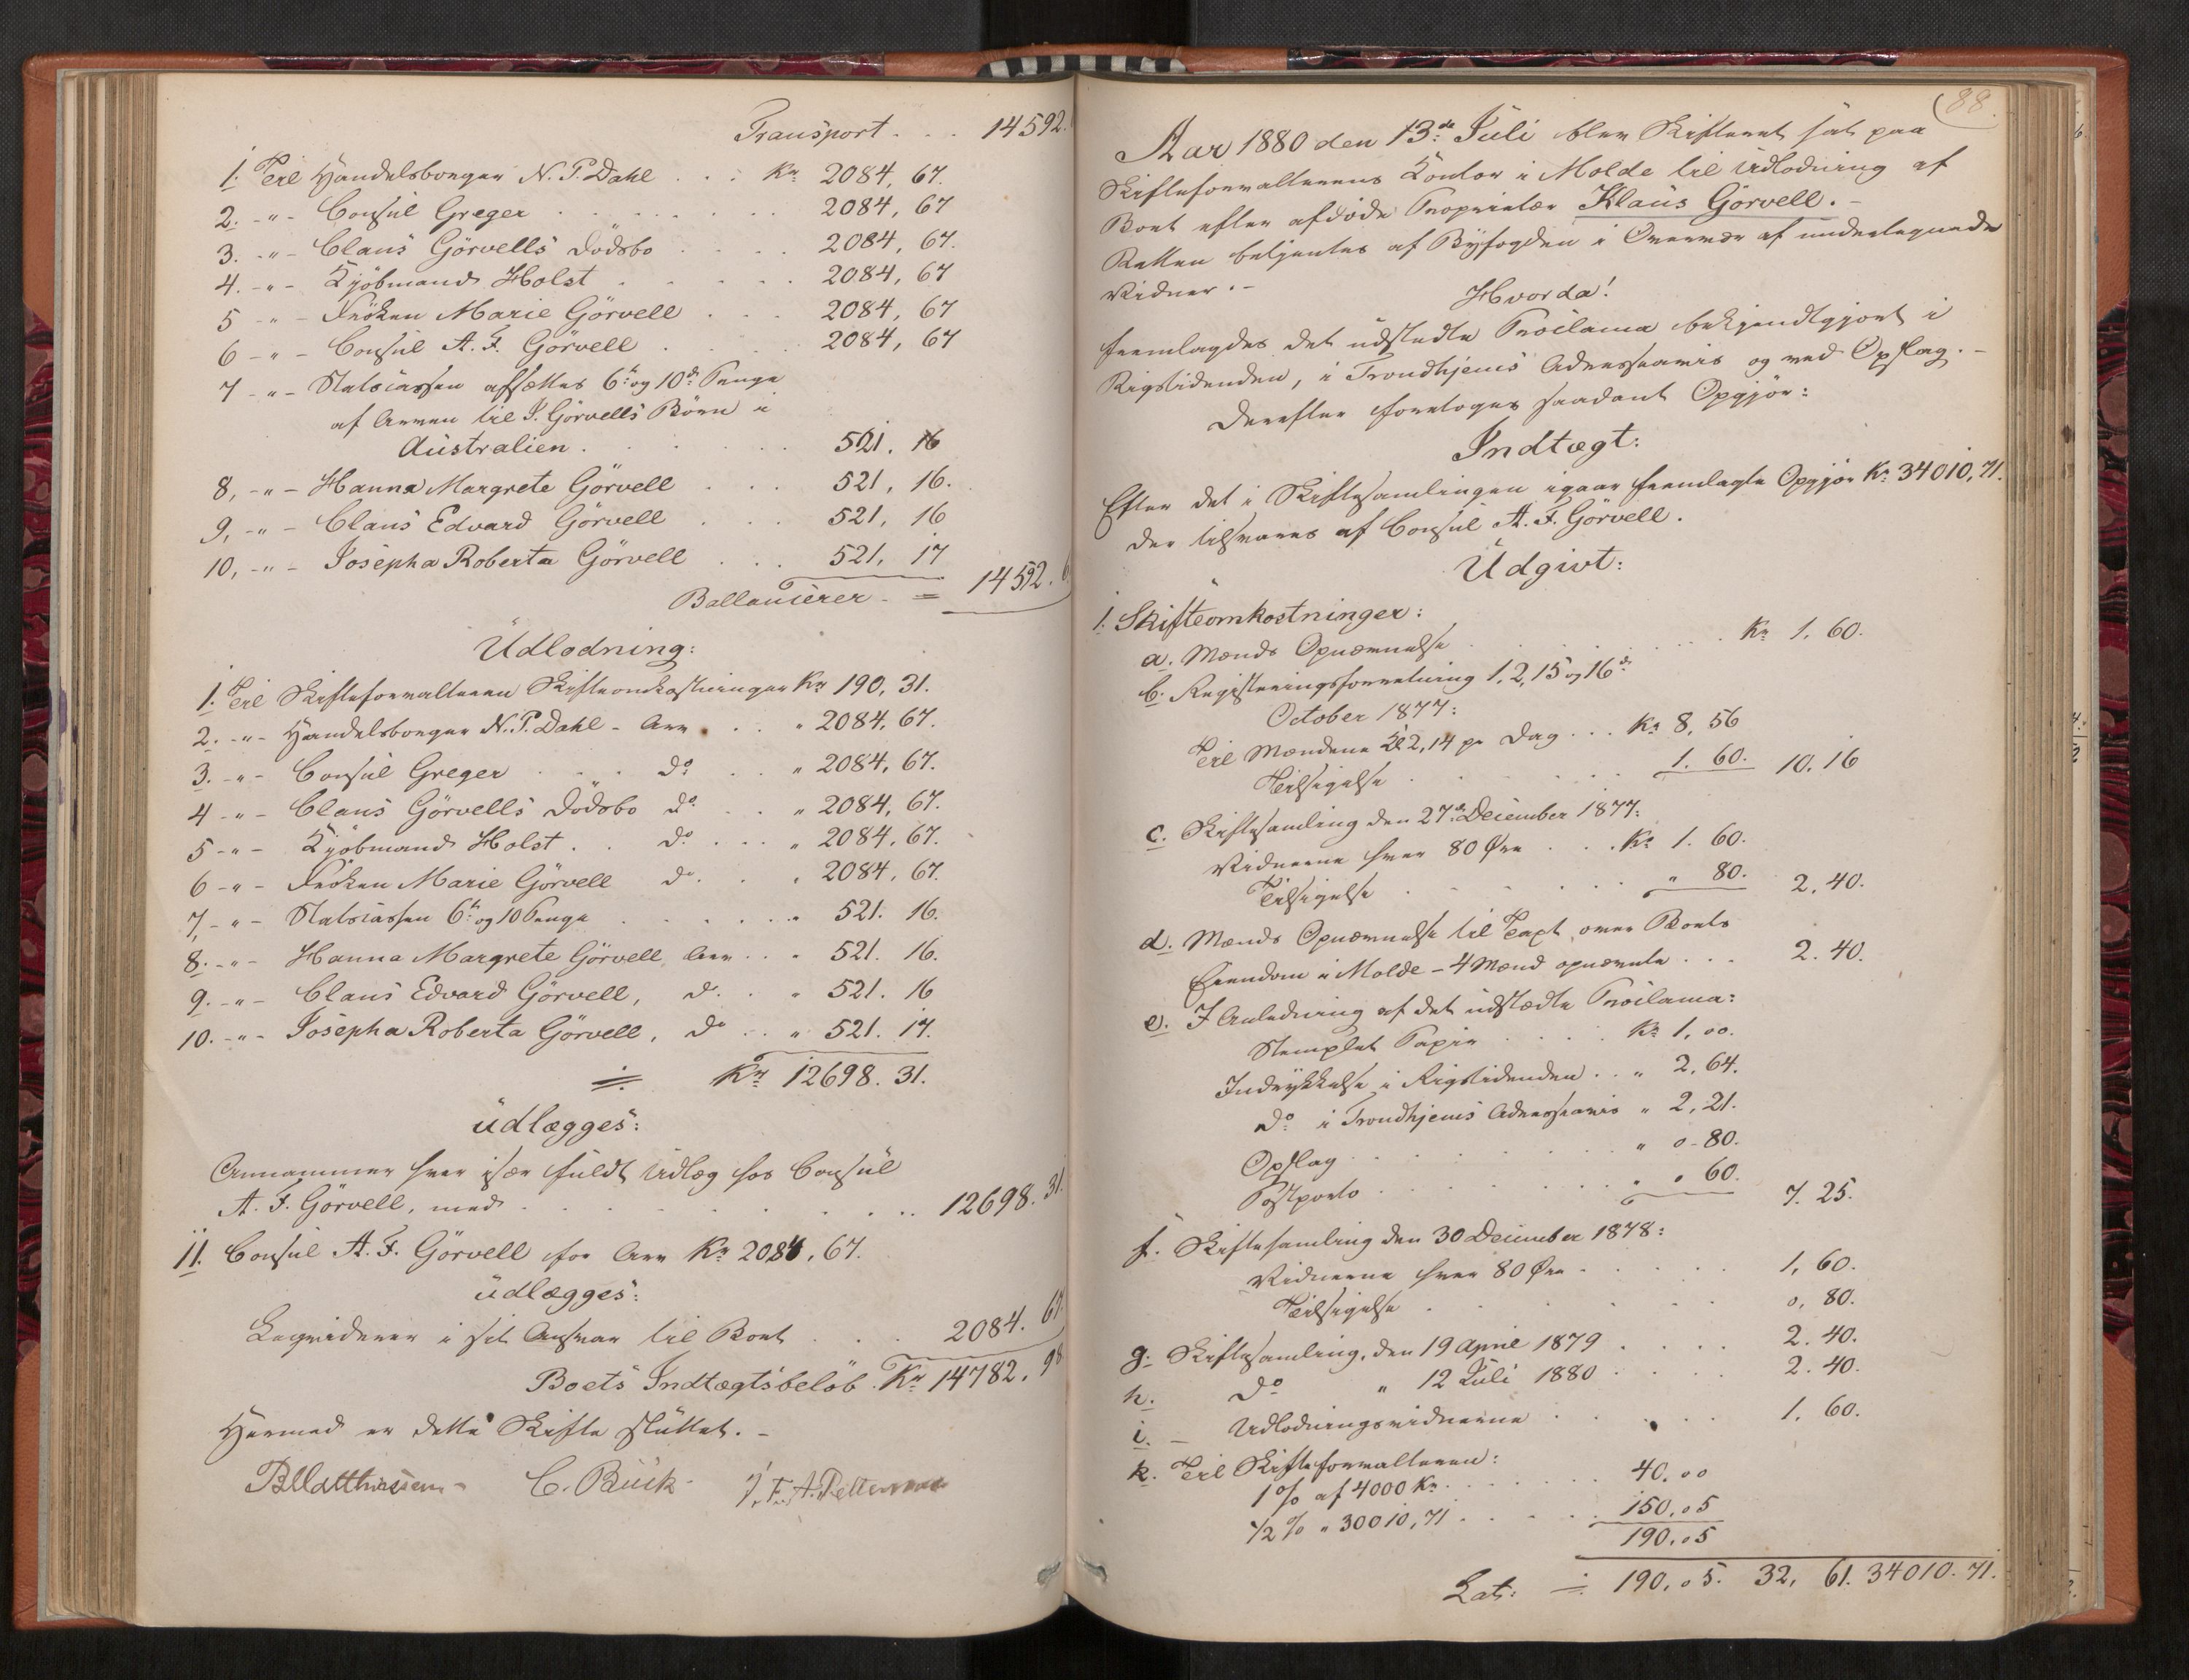 Transport . . . 14592.
1. Til Handelsborger N. P. Dahl . . . Kr 2084, 67.
2. -"- Consul Greger . . . 2084, 67
3. -"- Claus Görvells Dödsbo . . . 2084, 67.
4. -"- Kjöbmand Holst . . . 2084, 67
5 -"- Fröken Marie Görvell . . . 2084, 67
6 -"- Consul A. F. Görvell . . . 2084, 67
7 -"- Statscassen afsættes 6te og 10de Penge
af Arven til J. Görvells Börn i
Australien . . . 521. 16
8, -"- Hanna Margrete Görvell . . . 521, 16.
9, -"- Claus Edvard Görvell . . . 521, 16
10, -"- Josepha Roberta Görvell . . . 521, 17
Ballancerer = 14592. 6
Udlodning:
1. Til Skifteforvalteren Skifteomkostninger Kr 190, 31.
2. -"- Handelsborger N. P. Dahl - Arv . . " 2084, 67.
3. -"- Consul Greger . . . Do . . " 2084, 67.
4 -"- Claus Görvells Dödsbo do . . " 2084, 67.
5 -"- Kjöbmand Holst . . do . . . " 2084, 67.
6 -"- Fröken Marie Görvell do . . " 2084, 67.
7, -"- Statscassen 6te og 10 Penge . . . " 521. 16.
8. -"- Hanna Margrete Görvell, Arv . . " 521. 16.
9. -"- Claus Edvard Görvell, do . . " 521. 16
10. -"- Josepha Roberta Görvell, do . . " 521. 17.
Kr 12698. 31.
udlægges:
Annammer hver især fuldt Udlæg hos Consul
A. F. Görvell, med . . . 12698. 31.
11. Consul A. F. Görvell for Arv Kr 2084, 67.
udlægges:
Liqviderer i sit Ansvar til Boet . . . 2084. 67
Boets Indtægtsbelöb . Kr 14782. 98
Hermed er dette Skifte sluttet. -
B Matthiessen - C. Buck - J. F. A. Petterson
88.
Aar 1880 den 13de Juli blev Skifteret sat paa
Skifteforvalterens Contor i Molde til Udlodning af
Boet efter afdöde Proprietær Klaus Görvell. -
Retten betjentes af Byfogden i Overvær af undertegnede
Vidner. -
Hvorda!
fremlagdes det udstedte Proclama bekjendtgjort i
Rigstidenden, i Trondhjems Adresseavis og ved Opslag. -
Derefter foretoges saadant Opgjör:
Indtægt:
Efter det i Skiftesamlingen igaar fremlagte Opgjör Kr 34010, 71.
der tilsvares af Consul A. F. Görvell.
Udgivt:
1. Skifteomkostninger:
a. Mænds Opnævnelse . . . Kr 1, 60.
b. Registreringsforretning 1, 2, 15 og 16de
October 1877:
Til Mændene Kr 2, 14 pr Dag . . . Kr 8, 56
Tilsigelse . . . 1. 60. 10. 16
c. Skiftesamling den 27de December 1877:
Vidnerne hver 80 Öre . . . Kr 1. 60.
Tilsigelse . . . " 80. 2, 40.
d. Mænds Opnævnelse til Taxt over Boets
Eiendom i Molde - 4 Mænd opnævnte . . . 2. 40.
e. I Anledning af det udstædte Proclama:
Stemplet Papir . . . Kr 1, 00.
Indrykkelse i Rigstidenden . . " 2, 64.
Do i Trondhjems Adresseavis " 2, 21.
Opslag . . . " 0. 80.
Postporto . . . " 0 60. 7. 25.
f. Skiftesamling den 30 December 1878:
Vidnerne hver 80 Öre . . . 1, 60.
Tilsigelse . . . 0, 80.
g. Skiftesamling, den 19 April 1879 . . . 2. 40.
h. Do " 12 Juli 1880 . . . 2. 40.
i. - Udlodningsvidnerne . . . 1. 60.
k. Til Skifteforvalteren:
1 % af 4000 Kr. . . . 40, 00
1/2 % " 30010, 71 . . . 150, 05
190, 05
Lat: 190, 05. 32, 61. 34010. 71.